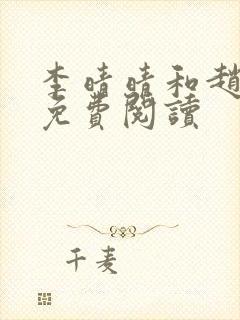 李晴晴和趙
免費閱讀
千麦